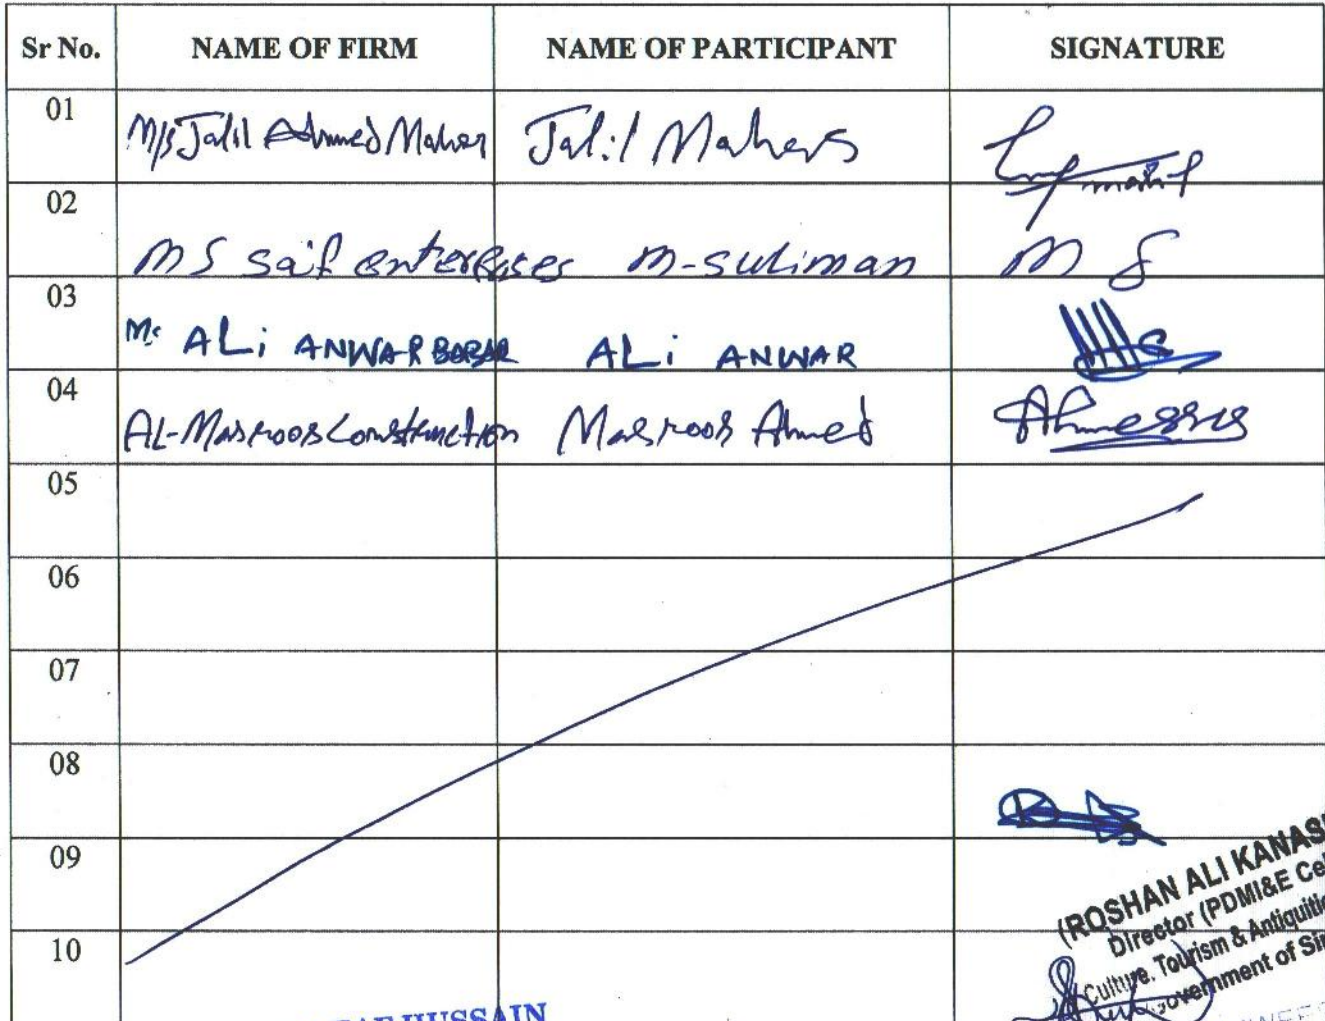 Sr No. NAME OF FIRM NAME OF PARTICIPANT SIGNATURE
01 M/s Jalil Ahmed Maher Jalil Mahers
02 MS saif enterprises M-suliman M S
03 Ms ALi ANWAR BABAR ALi ANWAR
04 AL-Masroor Construction Masroor Ahmed
05
06
07
08
09
10
(ROSHAN ALI KANAS
Director (PDMI&E Cel
Culture, Tourism & Antiquitie
Government of Sin
HUSSAIN